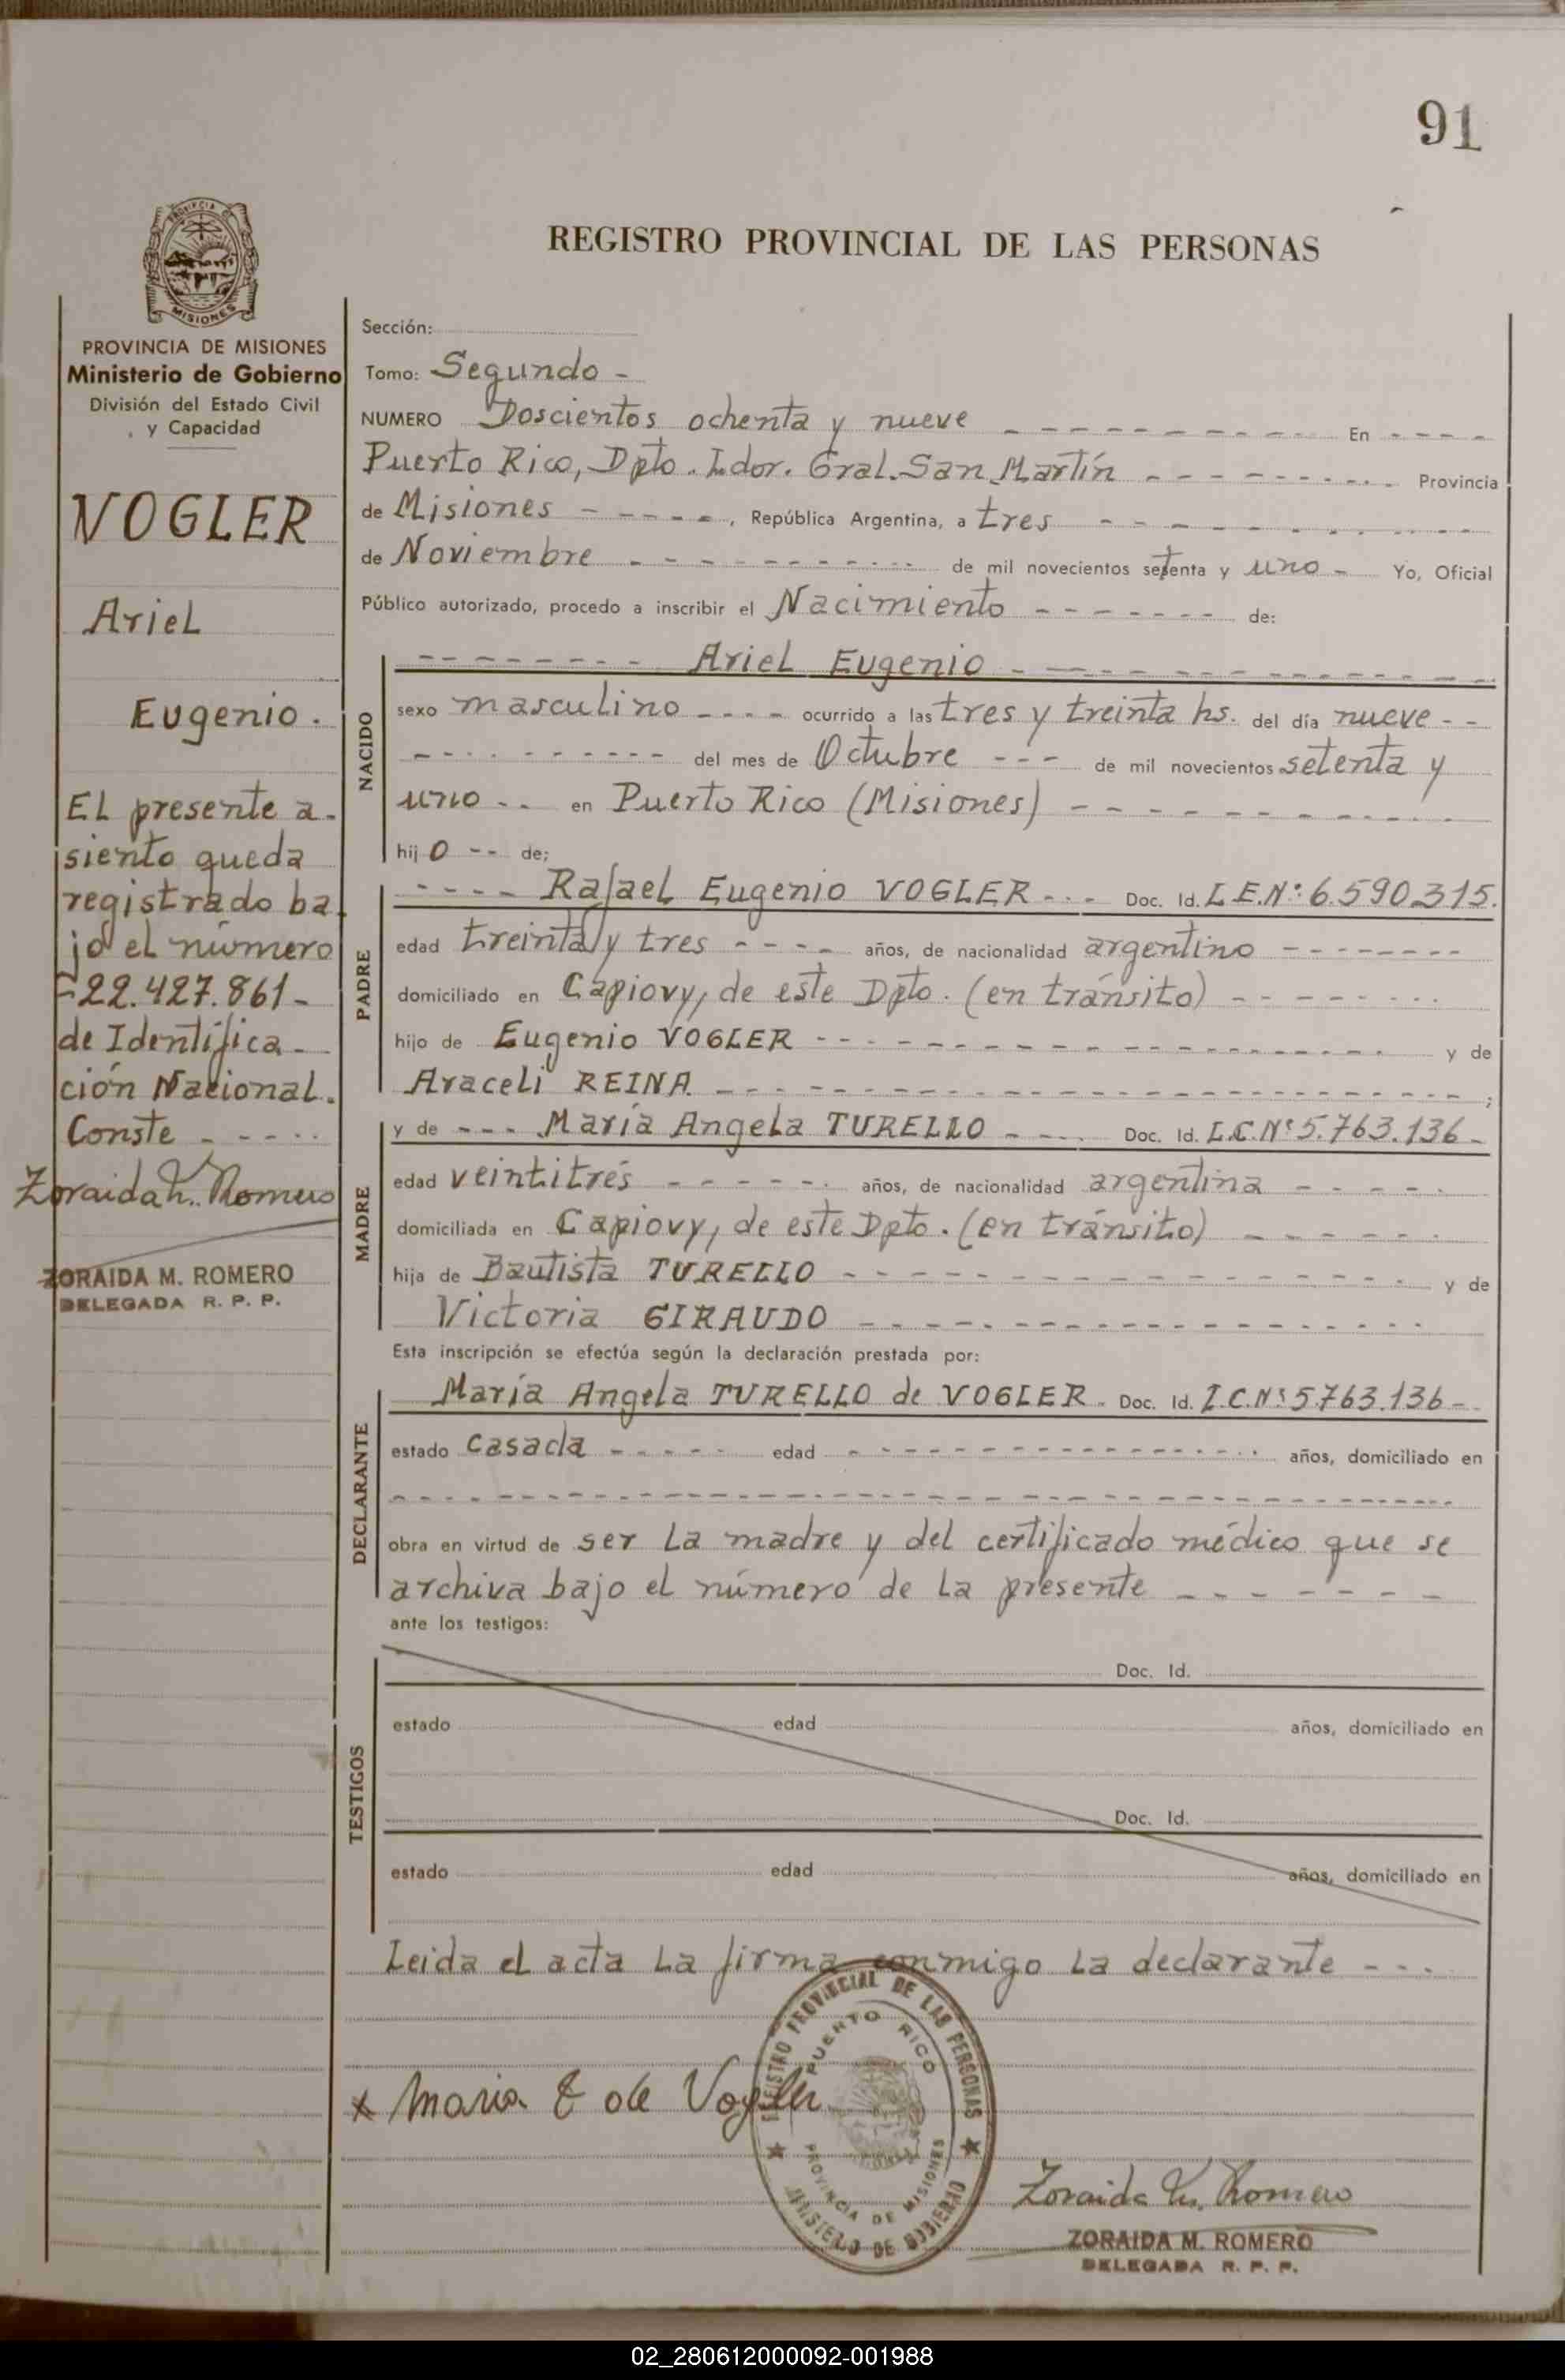 91
REGISTRO PROVINCIAL DE LAS PERSONAS
PROVINCIA DE MISIONES
Ministerio de Gobierno
División del Estado Civil
y Capacidad
VOGLER
Ariel
Eugenio.
El presente a-
siento queda
registrado ba
jo el número
-22.427.861-
de Identifica-
ción Nacional.
Conste - - - - -
Zoraida M. Romero
ZORAIDA M. ROMERO
DELEGADA R. P. P.
Sección:
Tomo: Segundo -
NUMERO Doscientos ochenta y nueve - - - - En - - - -
Puerto Rico, Dpto. Ldor. Gral. San Martín - - - - Provincia
de Misiones - - - - -, República Argentina, a tres - - - -
de Noviembre - - - - de mil novecientos setenta y uno - Yo, Oficial
Público autorizado, procedo a inscribir el Nacimiento - - - - de:
NACIDO
- - - - Ariel Eugenio - - - -
sexo masculino - - - - ocurrido a las tres y treinta hs. del día nueve - -
- - - - del mes de Octubre - - - de mil novecientos setenta y
uno - - en Puerto Rico (Misiones) - - - -
hijo - - de;
PADRE
- - - - Rafael Eugenio VOGLER - - - Doc. Id. L.E.Nº: 6.590.315.
edad treinta y tres - - - - años, de nacionalidad argentino - - - -
domiciliado en Capiovy, de este Dpto. (en tránsito) - - - -
hijo de Eugenio VOGLER - - - - y de
Araceli REINA - - - - ;
MADRE
y de - - - María Angela TURELLO - - - - Doc. Id. L.C.Nº 5.763.136 -
edad veintitrés - - - - años, de nacionalidad argentina - - - -
domiciliada en Capiovy, de este Dpto. (en tránsito) - - - -
hija de Bautista TURELLO - - - - y de
Victoria GIRAUDO - - - -
Esta inscripción se efectúa según la declaración prestada por:
DECLARANTE
María Angela TURELLO de VOGLER - Doc. Id. L.C.Nº: 5.763.136 - -
estado casada - - - - edad - - - - años, domiciliado en
- - - -
obra en virtud de ser la madre y del certificado médico que se
archiva bajo el número de la presente - - - -
ante los testigos:
TESTIGOS
Doc. Id.
estado edad años, domiciliado en
Doc. Id.
estado edad años, domiciliado en
Leida el acta la firma conmigo la declarante - - - -
REGISTRO PROVINCIAL DE LAS PERSONAS
PUERTO RICO
PROVINCIA DE MISIONES
MINISTERIO DE GOBIERNO
x Maria T de Vogler
Zoraida M. Romero
ZORAIDA M. ROMERO
DELEGADA R. P. P.
02_280612000092-001988